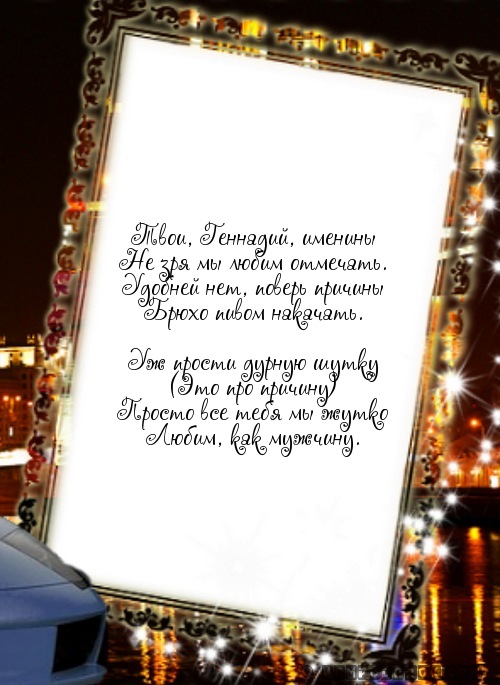 Твои, Геннадий, именины
Не зря мы любим отмечать.
Удобней нет, поверь причины
Брюхо пивом накачать.
Уж прости дурную шутку
(Это про причину)
Просто все тебя мы жутко
Любим, как мужчину.